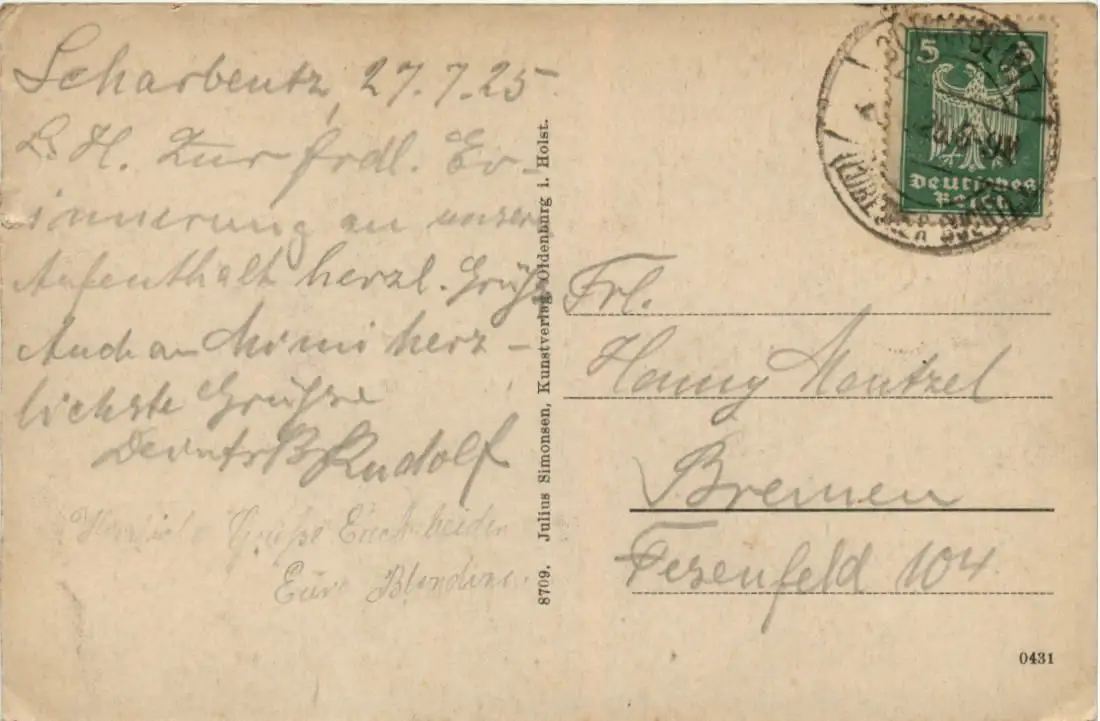 Scharbeutz, 27.7.25
L. H. Zur frdl. Er-
innerung an unsern
Aufenthalt herzl. Grüße
Auch an Mimi herz-
lichste Grüße
Rudolf
Grüße Euch beiden
Eure Blondine.
8709. Julius Simonsen, Kunstverlag, Oldenburg i. Holst.
5
Deutsches
Reich
Frl.
Hanny Mantzel
Bremen
Fesenfeld 104.
0431